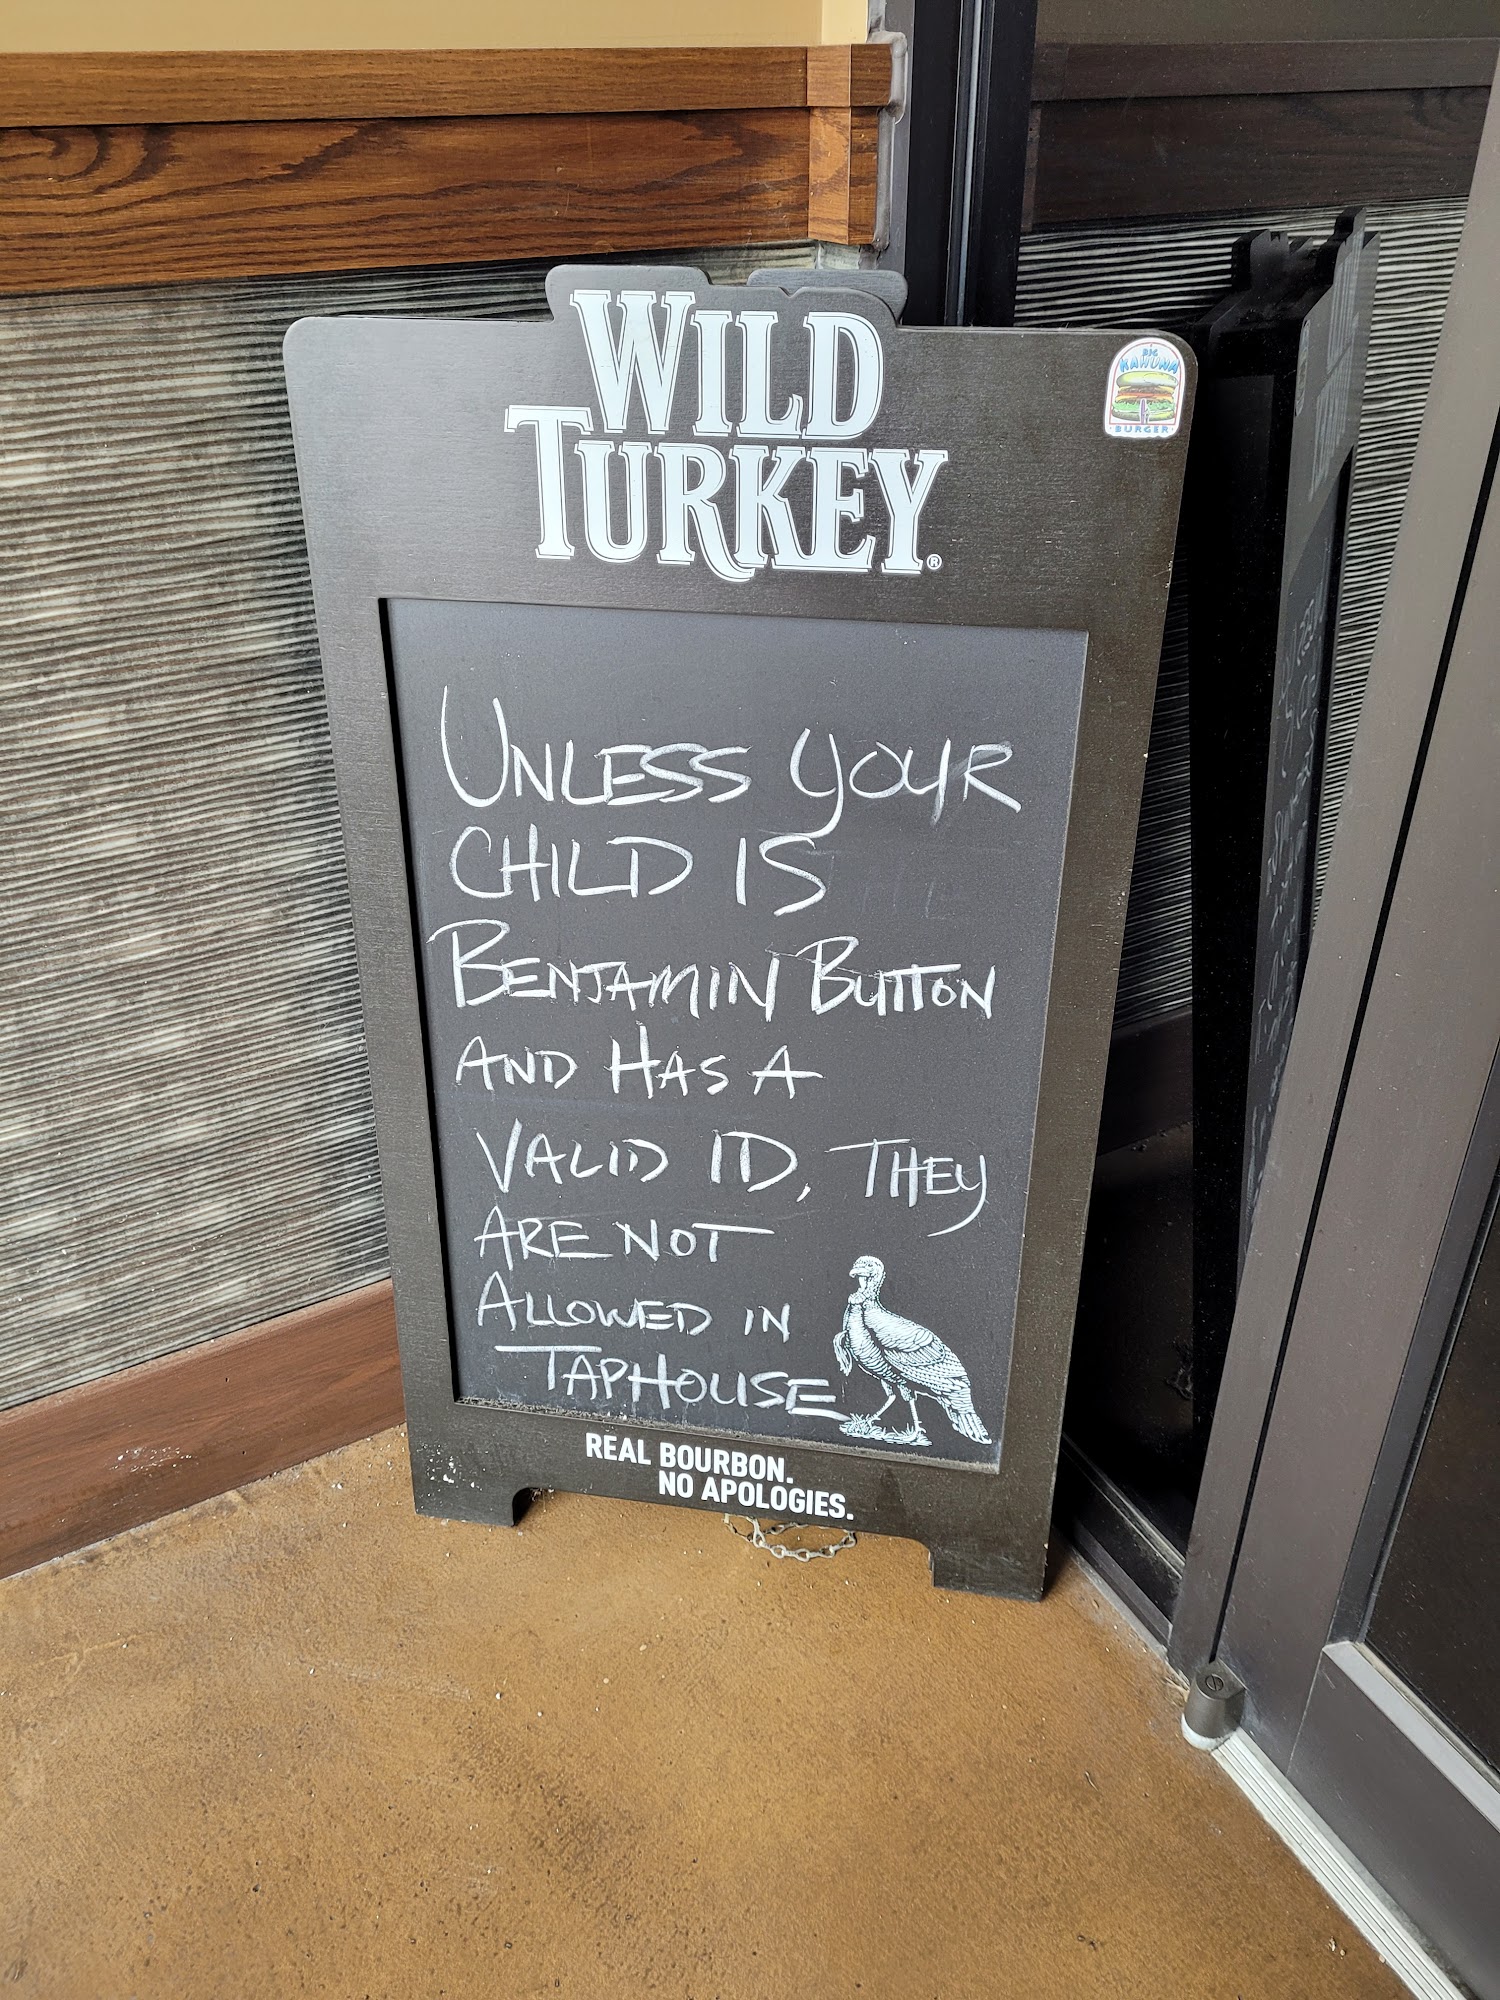 WILD
TURKEY®
BIG
KAHUNA
BURGER
UNLESS YOUR
CHILD IS
BENJAMIN BUTTON
AND HAS A
VALID ID, THEY
ARE NOT
ALLOWED IN
TAPHOUSE
REAL BOURBON.
NO APOLOGIES.